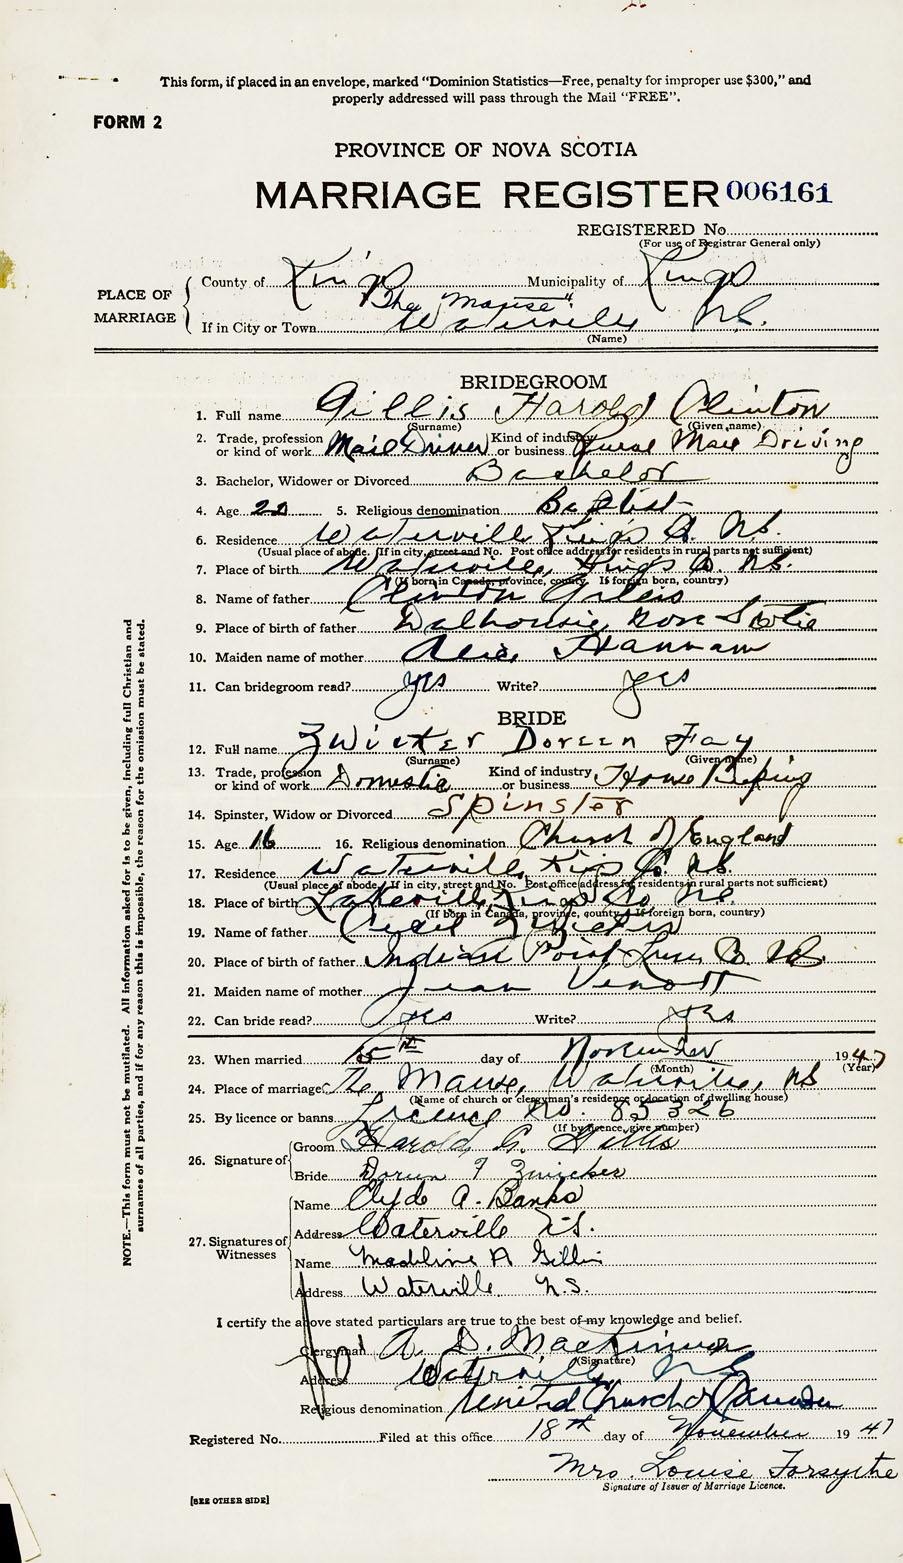 This form, if placed in an envelope, marked "Dominion Statistics—Free, penalty for improper use $300," and
properly addressed will pass through the Mail "FREE".
FORM 2
PROVINCE OF NOVA SCOTIA
MARRIAGE REGISTER 006161
REGISTERED No
(For use of Registrar General only)
PLACE OF MARRIAGE
County of Kings Municipality of Kings
The "Manse"
If in City or Town Waterville N.S.
(Name)
BRIDEGROOM
1. Full name Gillis Harold Clinton
(Surname) (Given name)
2. Trade, profession or kind of work Mail Driver Kind of industry or business Rural Mail Driving
3. Bachelor, Widower or Divorced Bachelor
4. Age 22 5. Religious denomination Baptist
6. Residence Waterville Kings Co. N.S.
(Usual place of abode. If in city, street and No. Post office address for residents in rural parts not sufficient)
7. Place of birth Waterville, Kings Co. N.S.
(If born in Canada, province, county. If foreign born, country)
8. Name of father Clinton Gillis
9. Place of birth of father Dalhousie, Nova Scotia
10. Maiden name of mother Hannam
11. Can bridegroom read? yes Write? yes
BRIDE
12. Full name Zwicker Doreen Fay
(Surname) (Given name)
13. Trade, profession or kind of work Domestic Kind of industry or business House Keeping
14. Spinster, Widow or Divorced Spinster
15. Age 16 16. Religious denomination Church of England
17. Residence Waterville, Kings Co. N.S.
(Usual place of abode. If in city, street and No. Post office address for residents in rural parts not sufficient)
18. Place of birth Lakeville, Kings Co N.S.
(If born in Canada, province, county. If foreign born, country)
19. Name of father Cecil Zwicker
20. Place of birth of father Indian Point Lun. Co. N.S.
21. Maiden name of mother Jean Vinott
22. Can bride read? yes Write? yes
23. When married 15th day of November 1947
(Month) (Year)
24. Place of marriage The Manse, Waterville, N.S
(Name of church or clergyman's residence or location of dwelling house)
25. By licence or banns Licence No. 85326
(If by licence, give number)
26. Signature of
Groom Harold C. Gillis
Bride Doreen F Zwicker
27. Signatures of Witnesses
Name Clyde A. Banks
Address Waterville N.S.
Name Madeline A Gillis
Address Waterville N.S.
I certify the above stated particulars are true to the best of my knowledge and belief.
Clergyman A. D. MacKinnon
(Signature)
Address Waterville N.S.
Religious denomination United Church of Canada
Registered No. Filed at this office 18th day of November 1947
Mrs. Louise Forsythe
Signature of Issuer of Marriage Licence.
[SEE OTHER SIDE]
NOTE.—This form must not be mutilated. All information asked for is to be given, including full Christian and
surnames of all parties, and if for any reason this is impossible, the reason for the omission must be stated.